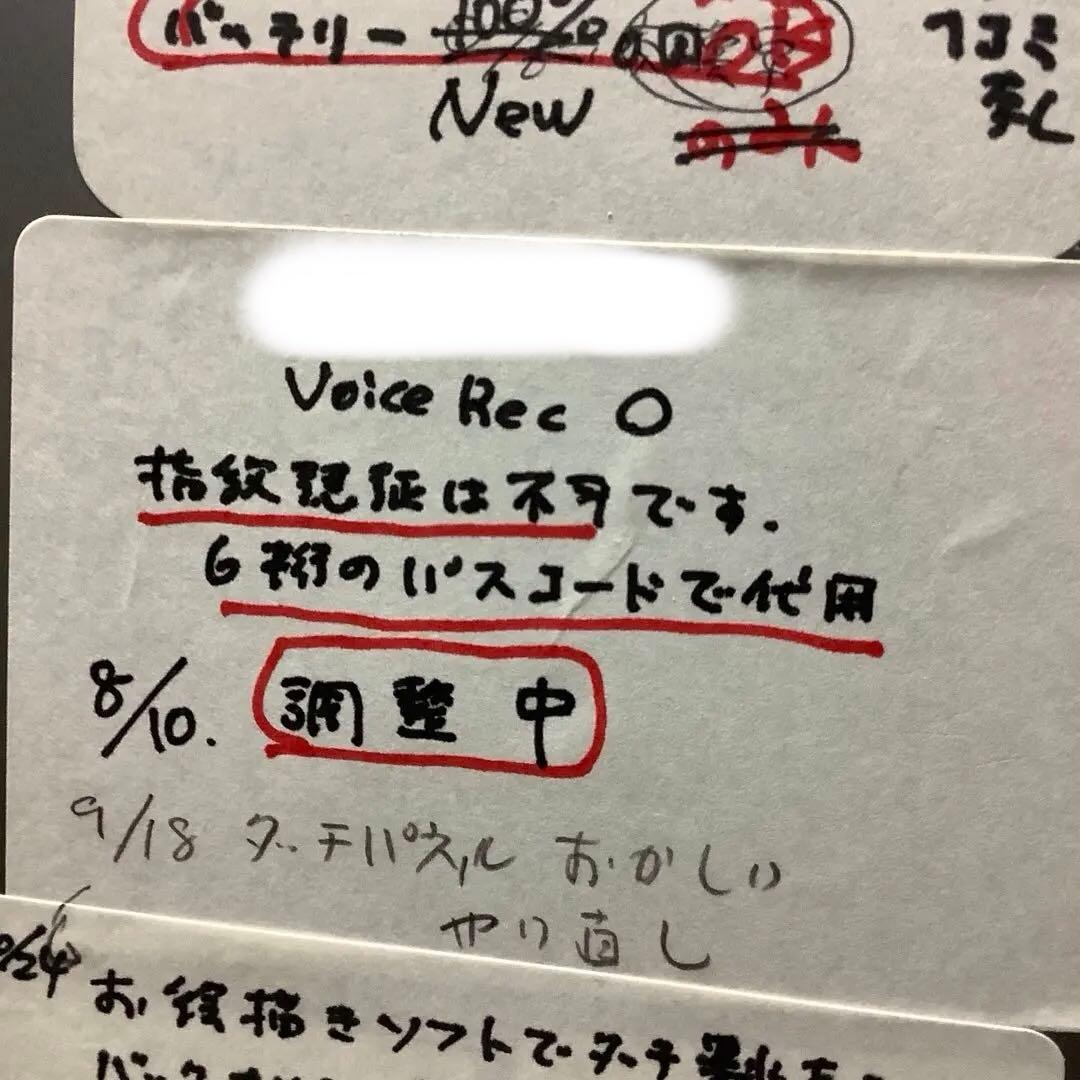 バッテリー 100%
New
Voice Rec ○
指紋認証は不可です.
6桁のパスコードで代用
8/10. 調整中
9/18 タッチパネル おかしい
やり直し
お絵描きソフトでタッチ